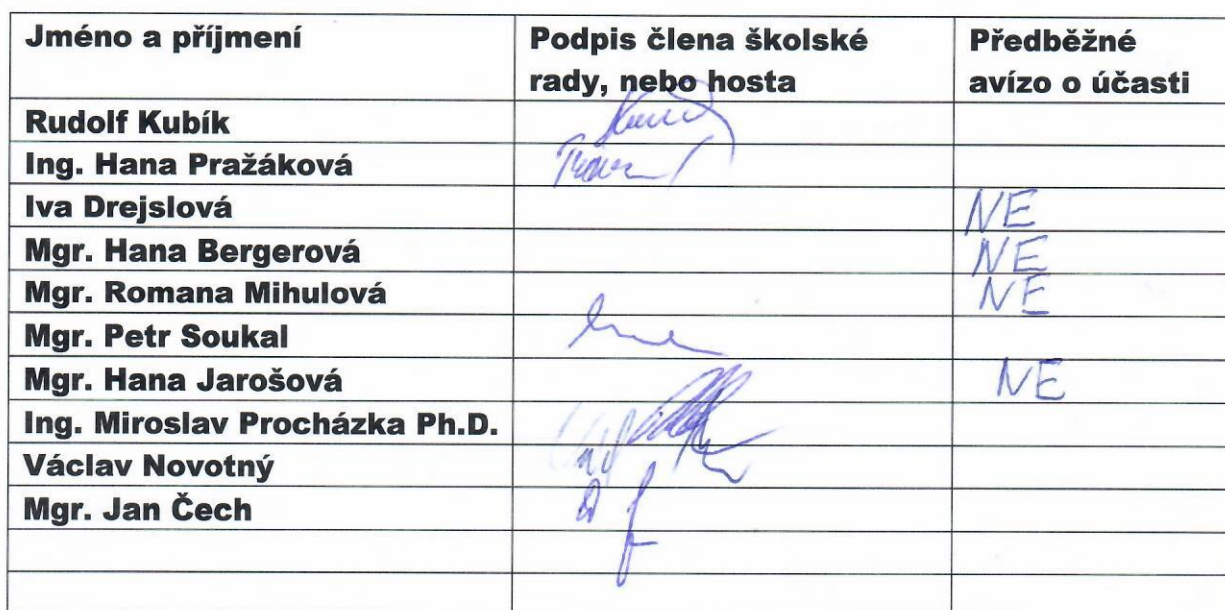 Jméno a příjmení Podpis člena školské Předběžné
rady, nebo hosta avízo o účasti
Rudolf Kubík
Ing. Hana Pražáková
Iva Drejslová NE
Mgr. Hana Bergerová NE
Mgr. Romana Mihulová NE
Mgr. Petr Soukal
Mgr. Hana Jarošová NE
Ing. Miroslav Procházka Ph.D.
Václav Novotný
Mgr. Jan Čech